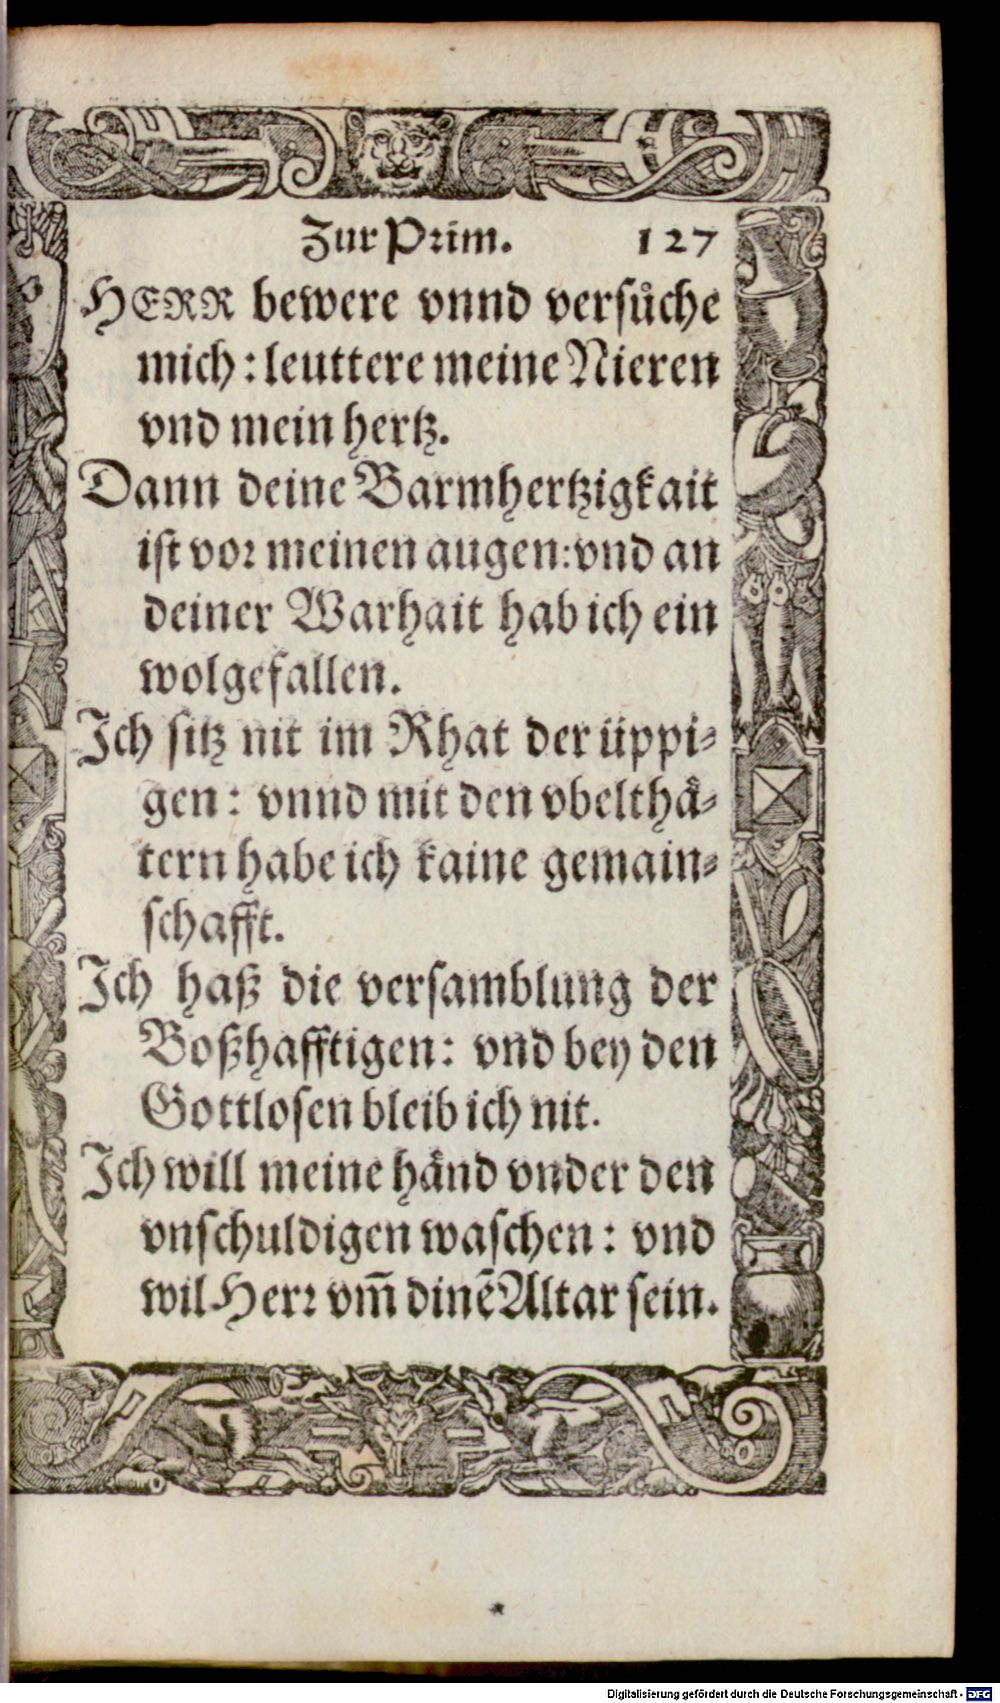 Zur Prim. 127
HERR bewere vnnd versůche
mich: leuttere meine Nieren
vnd mein hertz.
Dann deine Barmhertzigkait
ist vor meinen augen: vnd an
deiner Warhait hab ich ein
wolgefallen.
Ich sitz nit im Rhat der üppi-
gen: vnnd mit den vbelthä-
tern habe ich kaine gemain-
schafft.
Ich haß die versamblung der
Boßhafftigen: vnd bey den
Gottlosen bleib ich nit.
Ich will meine händ vnder den
vnschuldigen waschen: vnd
wil Herr vm̄ dinē Altar sein.
Digitalisierung gefördert durch die Deutsche Forschungsgemeinschaft - DFG